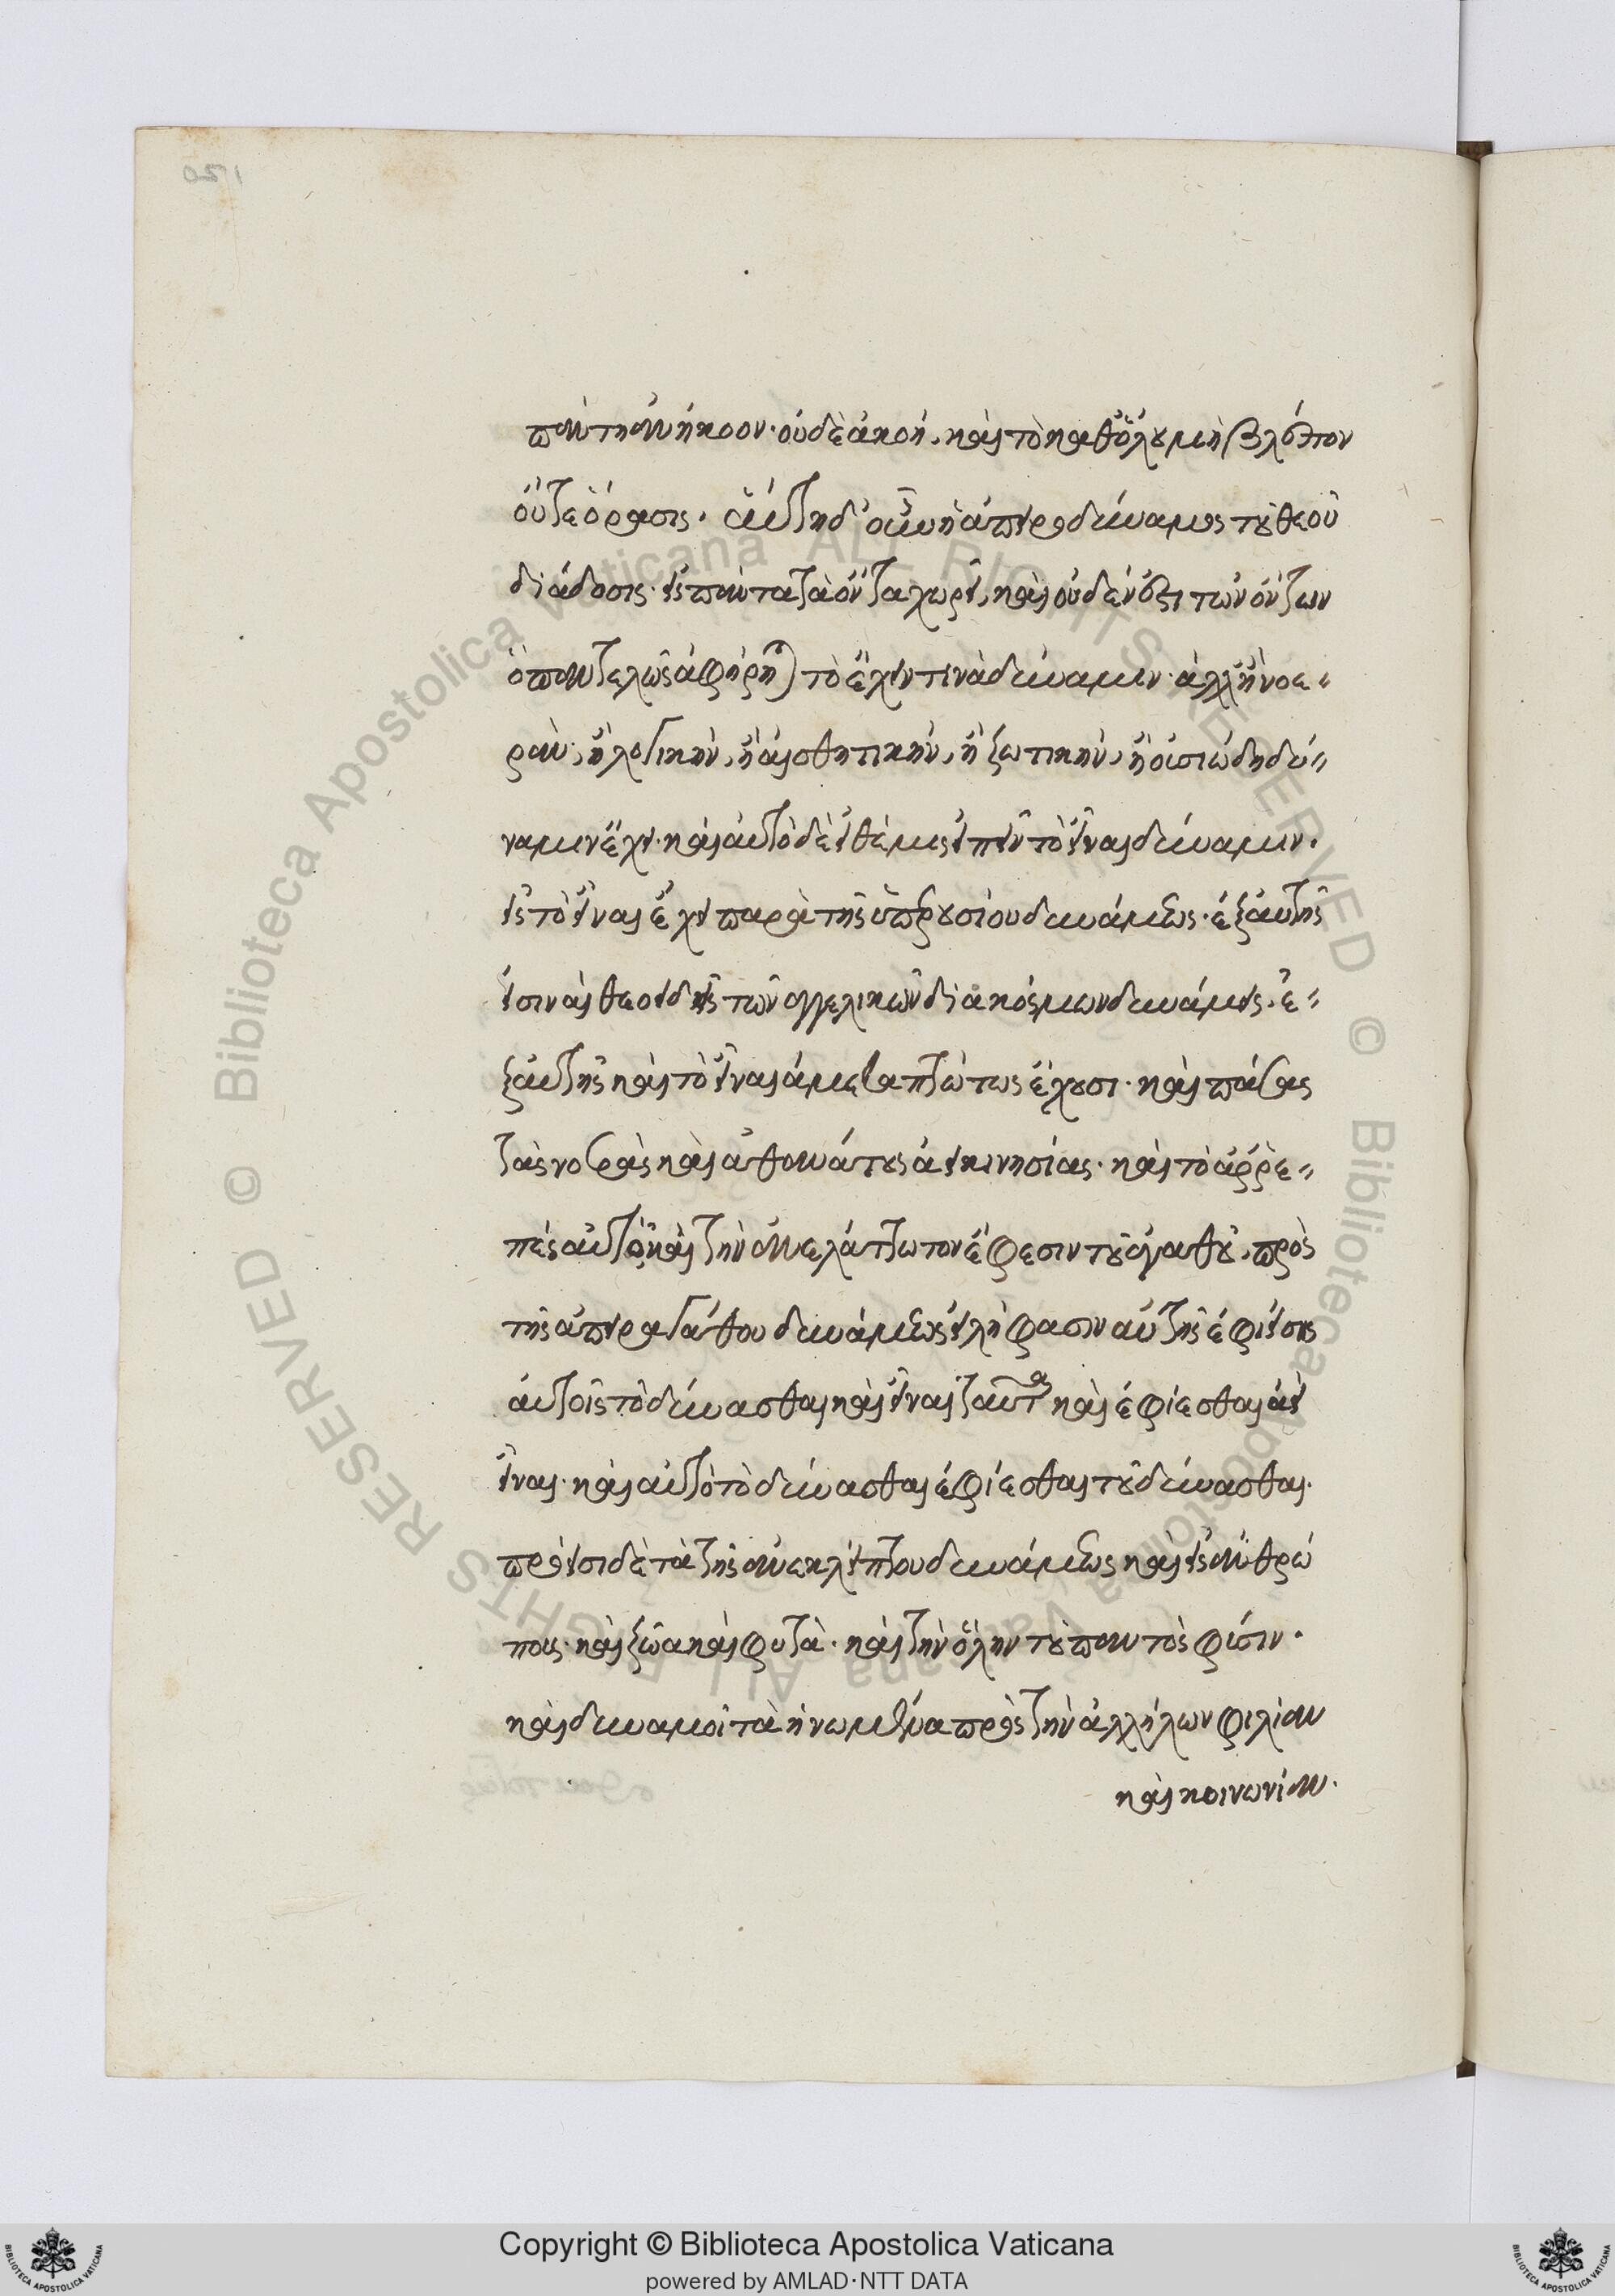 παντη ἀνήκοον· οὐδὲ ἀκοή, καὶ τὸ καθόλου μὴ βλέπον
οὔτε ὅρασις. αὕτη δ' οὖν ἡ ἀπειροδύναμος τοῦ θεοῦ
διάδοσις· εἰς πάντα τὰ ὄντα χωρεῖ, καὶ οὐδέν ἐστι τῶν ὄντων
ὃ παντελῶς ἀφήρηται τὸ ἔχειν τινὰ δύναμιν· ἀλλ' ἢ νοε-
ρὰν, ἢ λογικὴν, ἢ αἰσθητικὴν, ἢ ζωτικὴν, ἢ οὐσιώδη δύ-
ναμιν ἔχει. καὶ αὐτὸ δὲ εἰ θέμις εἰπεῖν τὸ εἶναι δύναμιν.
εἰς τὸ εἶναι ἔχει παρὰ τῆς ὑπερουσίου δυνάμεως. ἐξ αὐτῆς
εἰσιν αἱ θεοειδεῖς τῶν ἀγγελικῶν διακόσμων δυνάμεις. ἐ-
ξ αὐτῆς καὶ τὸ εἶναι ἀμεταπτώτως ἔχουσι· καὶ πάσας
τὰς νοερὰς καὶ ἀθανάτους ἀεικινησίας· καὶ τὸ ἀρρε-
πὲς αὐτὸ καὶ τὴν ἀνελάττωτον ἔφεσιν τοῦ ἀγαθοῦ, πρὸς
τῆς ἀπειραγάθου δυνάμεως εἰλήφασιν αὐτῆς ἐφιείσης
αὐτοῖς τὸ δύνασθαι καὶ εἶναι ταῦτα καὶ ἐφίεσθαι ἀεὶ
εἶναι. καὶ αὐτὸ τὸ δύνασθαι ἐφίεσθαι τοῦ δύνασθαι.
πρόεισι δὲ τὰ τῆς ἀνεκλείπτου δυνάμεως καὶ εἰς ἀνθρώ
πους. καὶ ζῶα καὶ φυτὰ. καὶ τὴν ὅλην τοῦ παντὸς φύσιν.
καὶ δυναμοῖ τὰ ἡνωμένα πρὸς τὴν ἀλλήλων φιλίαν
καὶ κοινωνίαν.
Copyright © Biblioteca Apostolica Vaticana
powered by AMLAD·NTT DATA